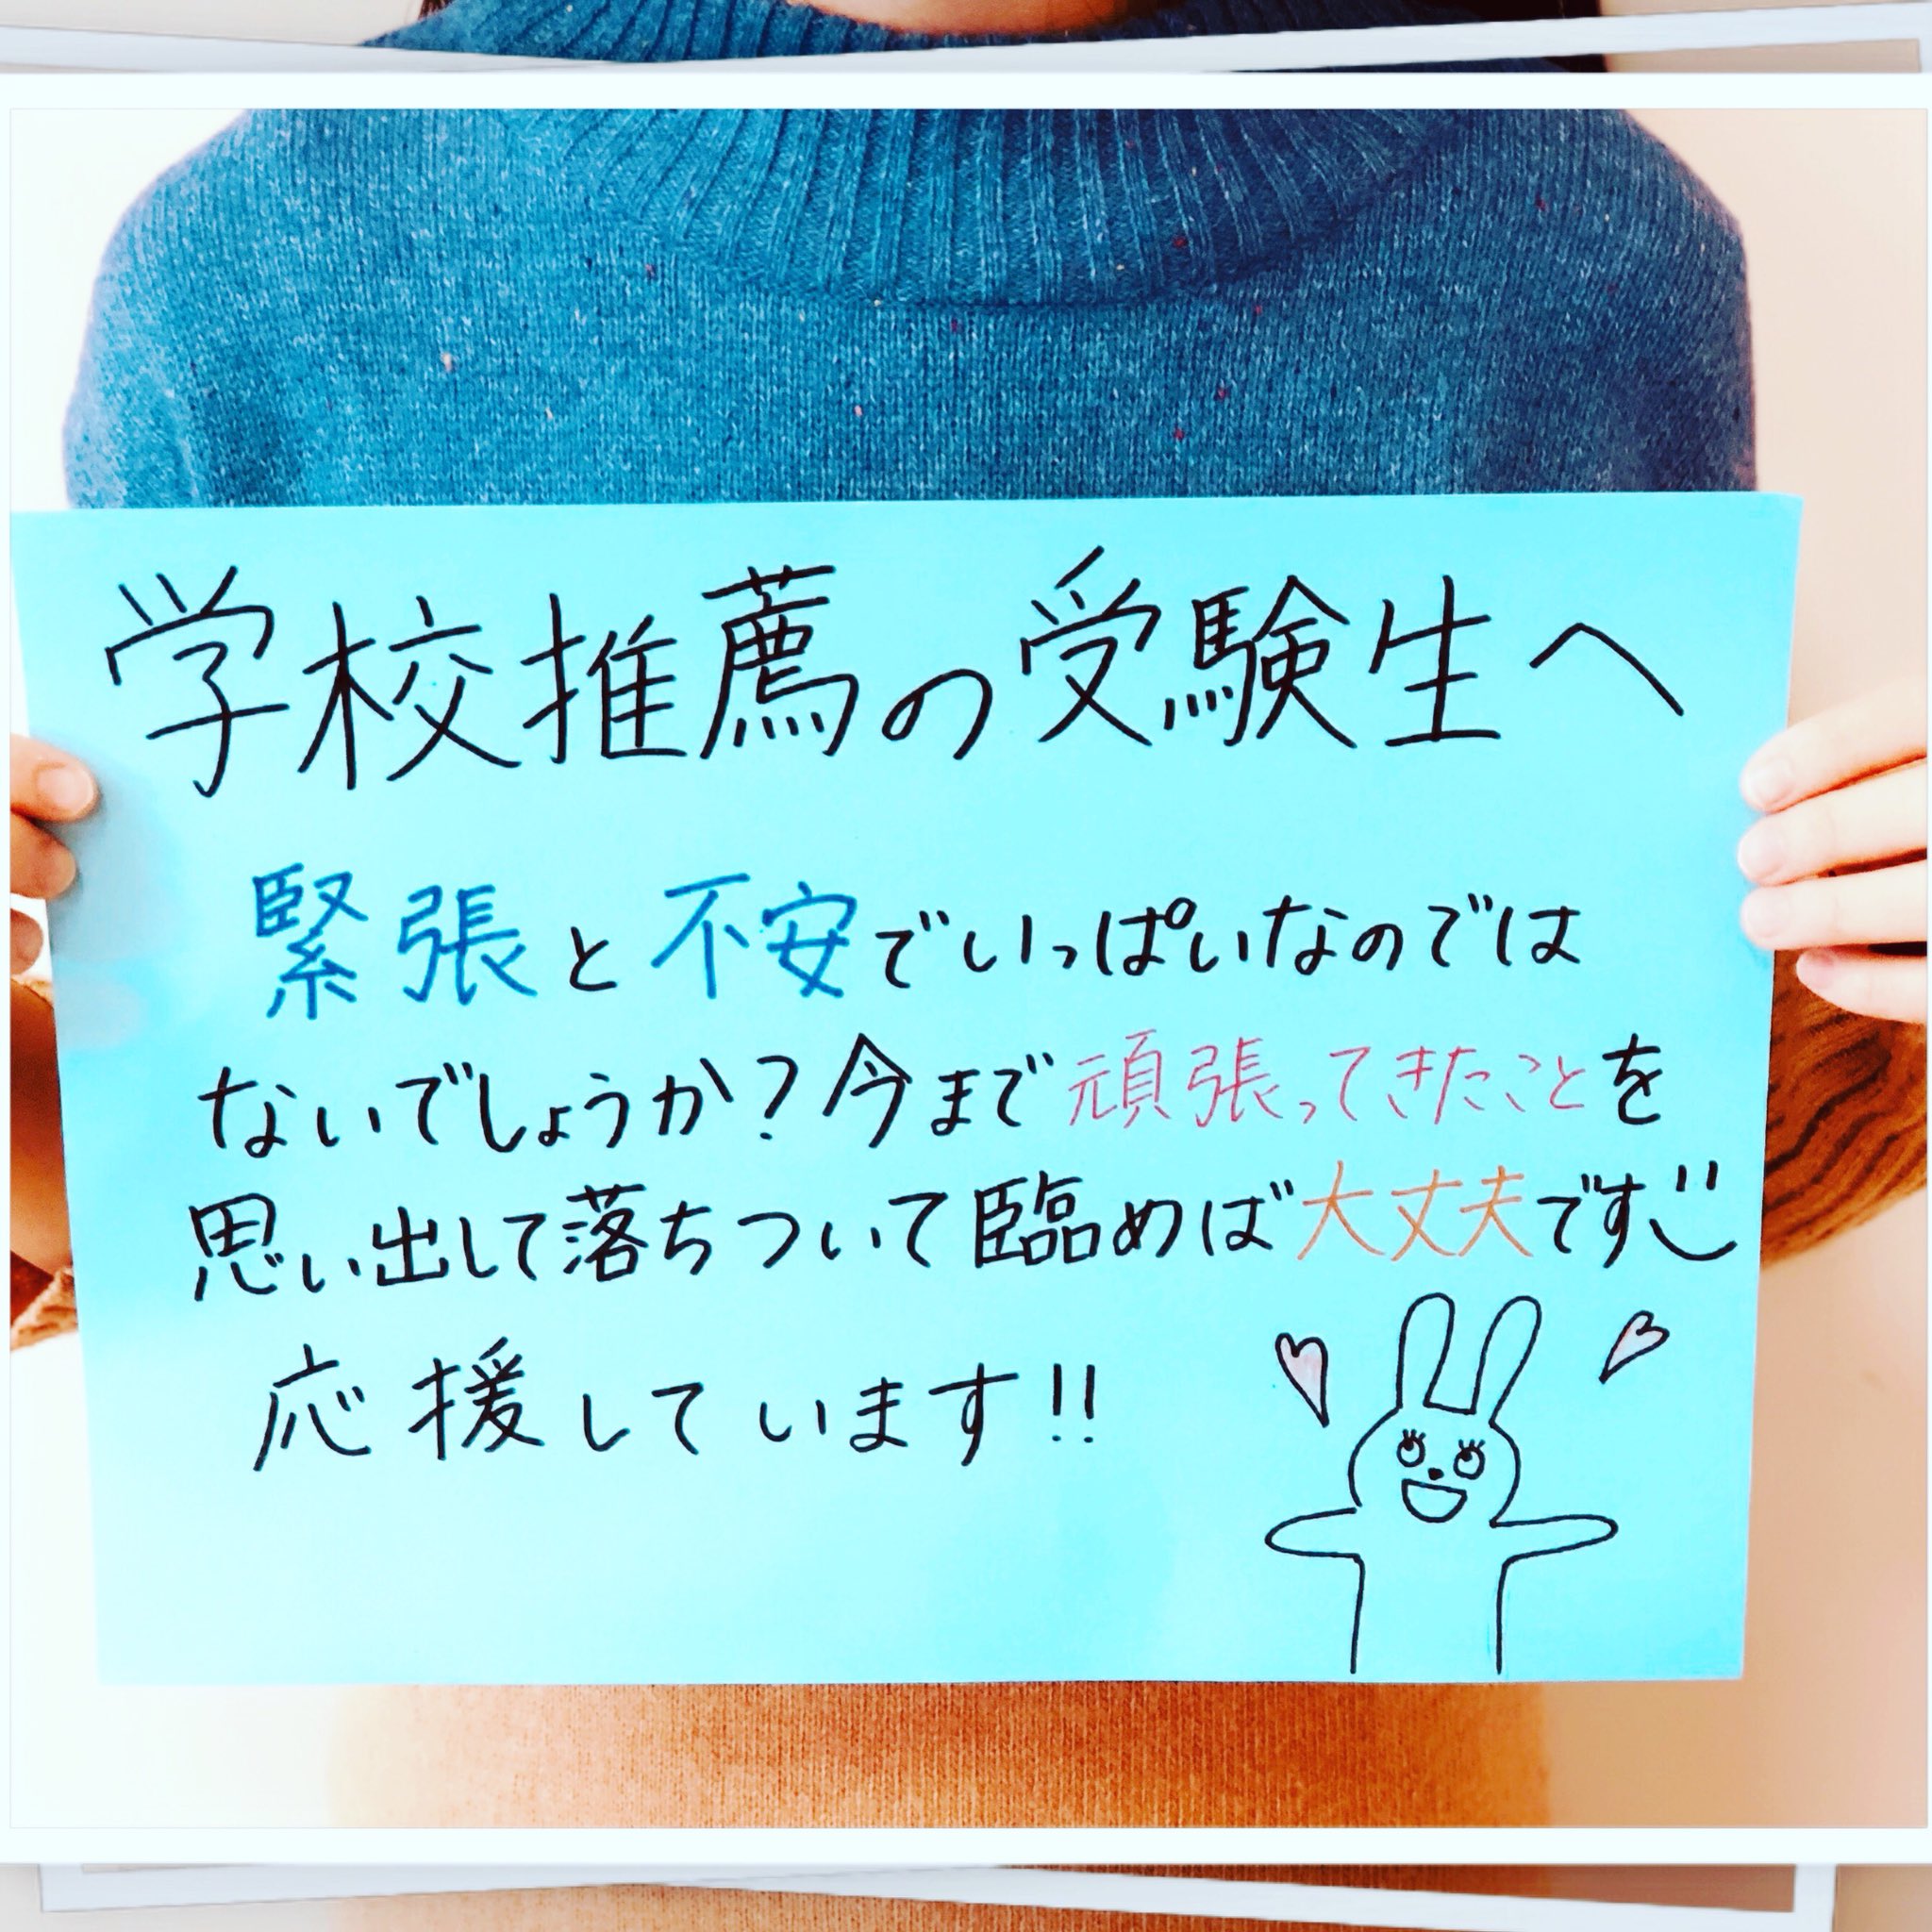 学校推薦の受験生へ
緊張と不安でいっぱいなのでは
ないでしょうか?今まで頑張ってきたことを
思い出して落ちついて臨めば大丈夫です
応援しています!!